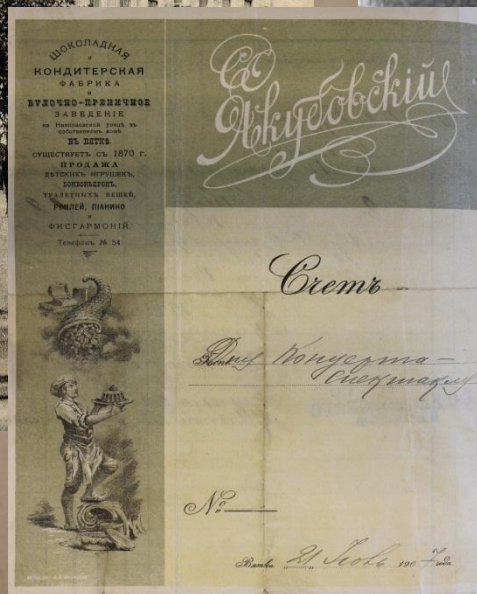 ШОКОЛАДНАЯ
и
КОНДИТЕРСКАЯ
ФАБРИКА
и
БУЛОЧНО-ПРЯНИЧНОЕ
ЗАВЕДЕНІЕ
на Николаевской улицѣ въ
собственномъ домѣ
ВЪ ВЯТКѢ
СУЩЕСТВУЕТЪ СЪ 1870 г.
ПРОДАЖА
ДѢТСКИХЪ ИГРУШЕКЪ,
БОНБОНЬЕРОКЪ,
ТУАЛЕТНЫХЪ ВЕЩЕЙ,
РОЯЛЕЙ, ПІАНИНО
и
ФИСГАРМОНІЙ.
Телефонъ № 54
Якубовскій
Счетъ
Для Концерта-
спектакля
№
Вятка 21 190 7 года